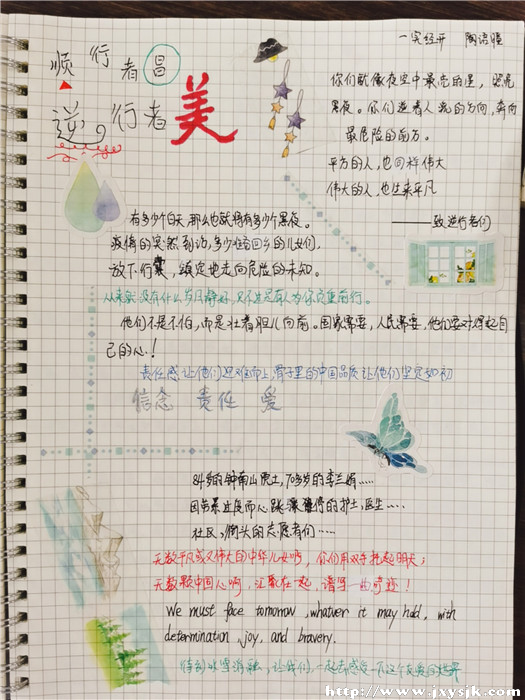 一实经开 陶语瞳
顺行者昌
逆行者
美
你们就像夜空中最亮的星,照亮
黑夜。你们逆着人流的方向,奔向
最危险的前方。
平凡的人,也同样伟大
伟大的人,也生来平凡
——致逆行者们
有多少个白天,那么也就将有多少个黑夜。
疫情的突然到访,多少临着回乡的儿女们,
放下行囊,镇定地走向危险的未知。
从来就没有什么岁月静好,只不过是有人为你负重前行。
他们不是不怕,而是壮着胆儿向前。国家需要,人民需要,他们要对得起自
己的心!
责任感让他们迎难而上,骨子里的中国品质让他们坚定如初
信念 责任 爱
84岁的钟南山院士,70多岁的李兰娟……
因劳累过度而心跳骤停的护士,医生……
社区,街头的志愿者们……
无数平凡或又伟大的中华儿女啊,你们用双手托起明天;
无数颗中国心啊,汇聚在一起,谱写一曲奇迹!
We must face tomorrow, whatever it may hold, with
determination, joy, and bravery.
待到冰雪消融,让我们,一起去感受一下这个
http://www.jxysjk.com